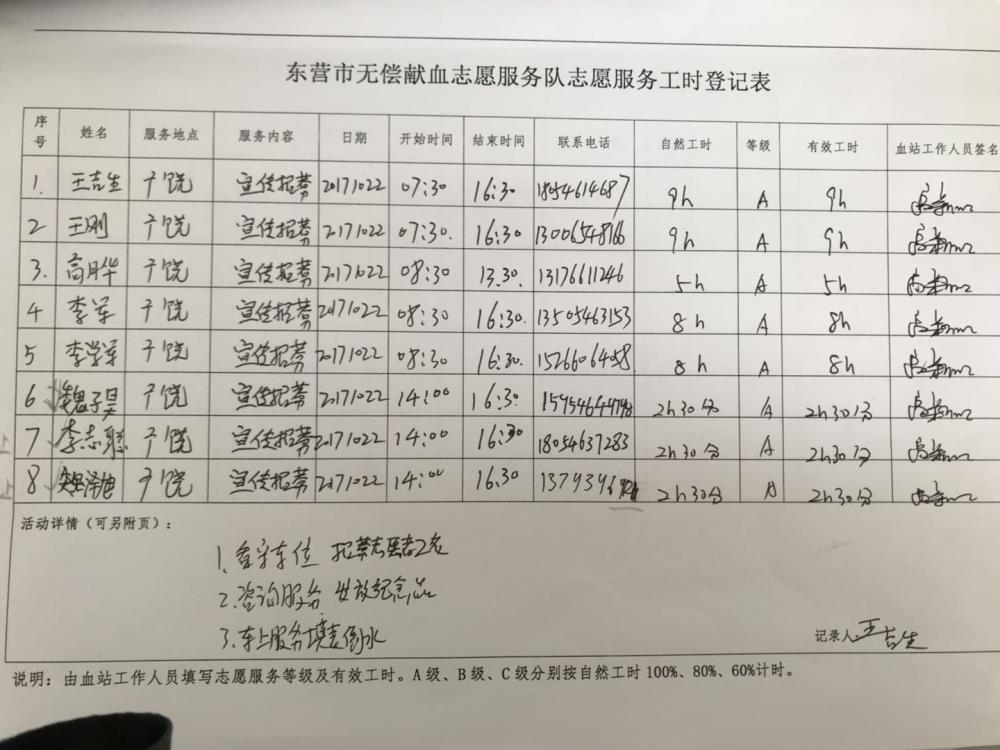 东营市无偿献血志愿服务队志愿服务工时登记表
序号 姓名 服务地点 服务内容 日期 开始时间 结束时间 联系电话 自然工时 等级 有效工时 血站工作人员签名
1. 王吉生 广饶 宣传招募 20171022 07:30 16:30 18054614687 9h A 9h
2 王刚 广饶 宣传招募 20171022 07:30. 16:30 13006548166 9h A 9h
3. 高月华 广饶 宣传招募 20171022 08:30 13.30. 13176611246 5h A 5h
4 李军 广饶 宣传招募 20171022 08:30 16:30. 13505463153 8h A 8h
5 李学军 广饶 宣传招募 20171022 08:30 16:30. 8h A 8h
6 魏子昊 广饶 宣传招募 20171022 14:00 16:30 2h30分 A 2h30分
7 李志聪 广饶 宣传招募 20171022 14:00 16:30 18054637283 2h30分 A 2h30分
8 广饶 宣传招募 20171022 14:00 16.30 2h30分 A 2h30分
活动详情（可另附页）：
1. 看守车位 招募志愿者2名
2. 咨询服务 发放纪念品
3. 车上服务填表倒水
记录人 王吉生
说明：由血站工作人员填写志愿服务等级及有效工时。A 级、B 级、C 级分别按自然工时 100%、80%、60%计时。